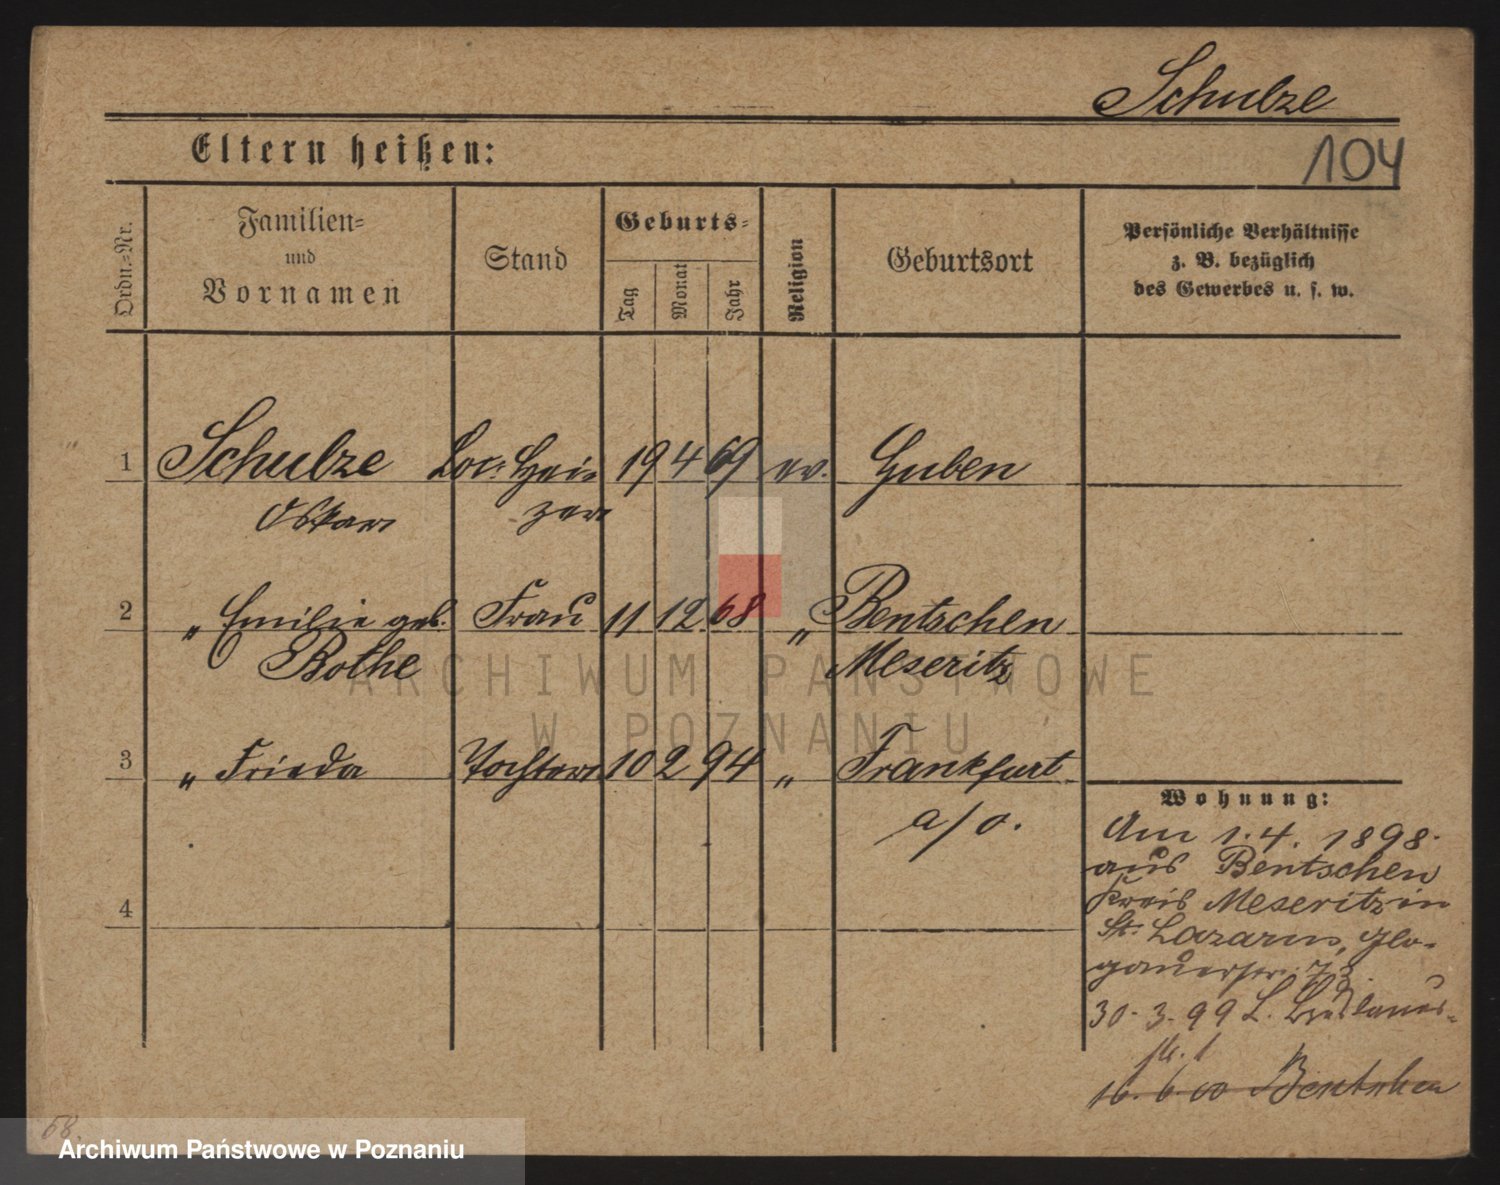 Schulze
Eltern heißen:
104
Ordn.-Nr.
Familien-
und
Vornamen
Stand
Geburts-
Tag
Monat
Jahr
Religion
Geburtsort
Persönliche Verhältnisse
z. B. bezüglich
des Gewerbes u. s. w.
1 Schulze Loc. Hei- 19 4 69 ev. Guben
Oskar zer
2 " Emilie geb. Frau 11 12 68 " Bentschen
Bothe Meseritz
3 " Frieda Tochter 10 2 94 " Frankfurt
a/O.
4
Wohnung:
Am 1.4. 1898.
aus Bentschen
Kreis Meseritz in
St. Lazarus, Glo-
gauerstr. 73.
30. 3. 99 L. Breslauer-
str. 1
16. 6. 00 Bentschen
58.
ARCHIWUM PAŃSTWOWE
W POZNANIU
Archiwum Państwowe w Poznaniu